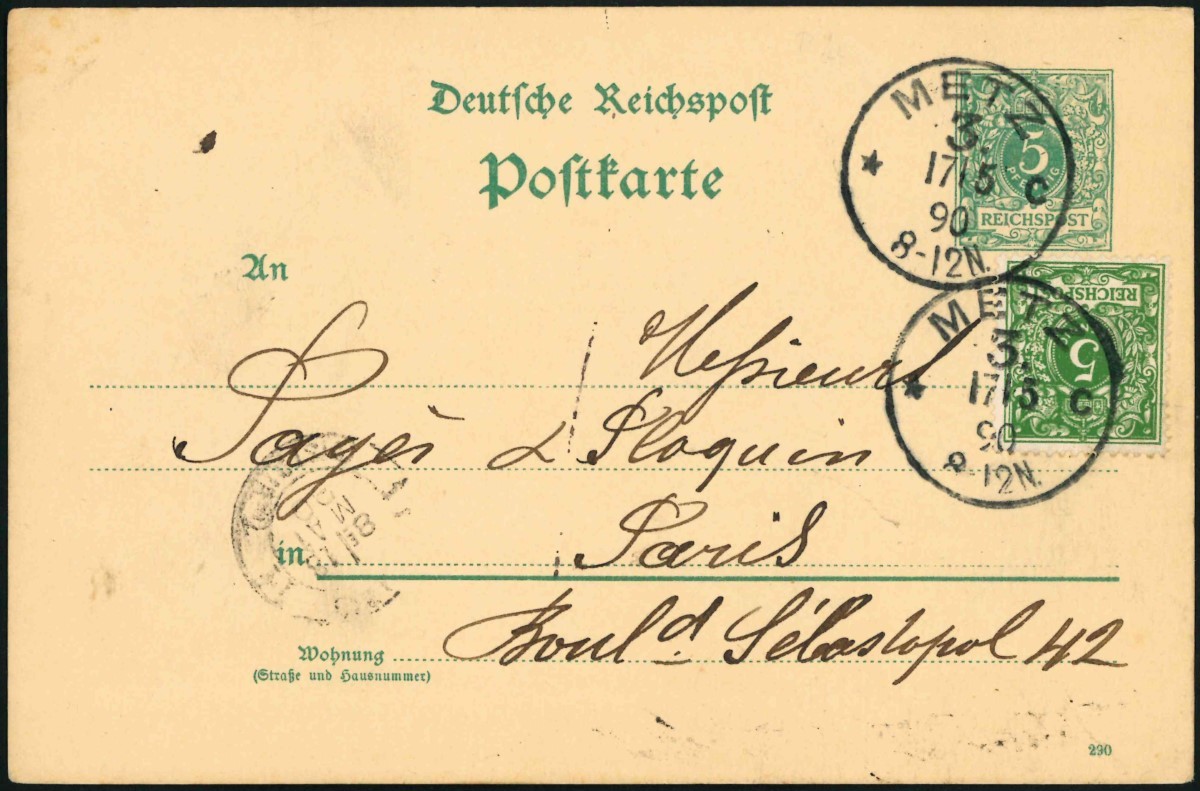 Deutsche Reichspost
Postkarte
METZ
3.
17/5 C
90
8-12N.
5
PFENNIG
REICHSPOST
METZ
3.
17/5 C
90
8-12N.
REICHSPOST
5
An
Messieurs
Payès & Ploquin
in Paris
Boul.d Sébastopol 42
Wohnung
(Straße und Hausnummer)
PARIS
18
MAI
90
290